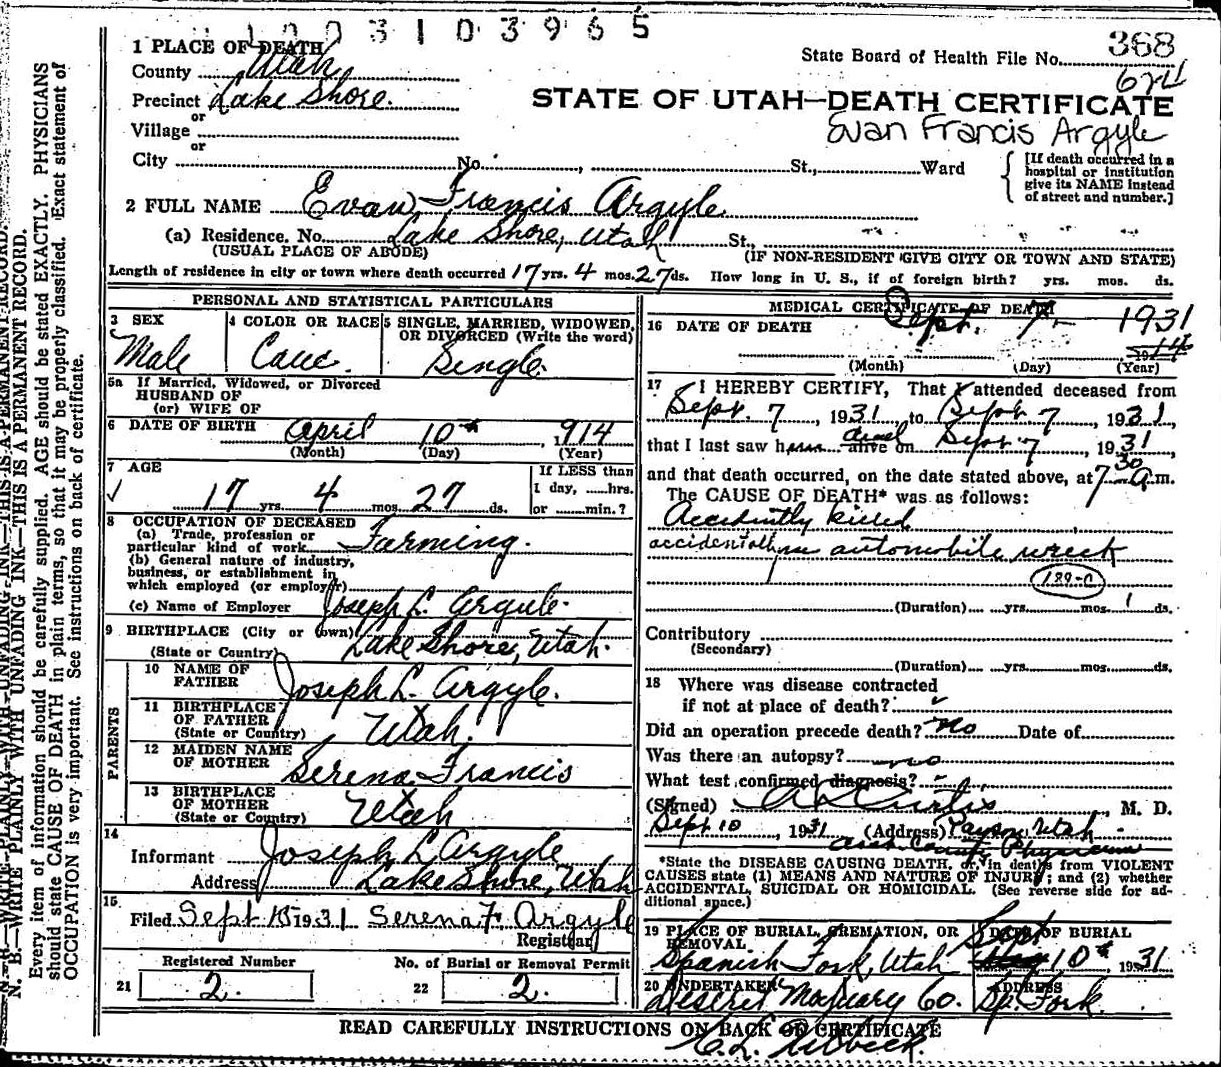 1 0 0 3 1 0 3 9 6 5
1 PLACE OF DEATH
County Utah
Precinct Lake Shore.
or
Village
or
City No. , St., Ward
State Board of Health File No. 368
STATE OF UTAH—DEATH CERTIFICATE
Evan Francis Argyle
[If death occurred in a
hospital or institution
give its NAME instead
of street and number.]
2 FULL NAME Evan Francis Argyle
(a) Residence. No. Lake Shore, Utah St.,
(USUAL PLACE OF ABODE) (IF NON-RESIDENT GIVE CITY OR TOWN AND STATE)
Length of residence in city or town where death occurred 17 yrs. 4 mos. 27 ds. How long in U. S., if of foreign birth? yrs. mos. ds.
PERSONAL AND STATISTICAL PARTICULARS
3 SEX
Male
4 COLOR OR RACE
Cauc.
5 SINGLE, MARRIED, WIDOWED,
OR DIVORCED (Write the word)
Single.
5a If Married, Widowed, or Divorced
HUSBAND OF
(or) WIFE OF
6 DATE OF BIRTH April 10th, 1914
(Month) (Day) (Year)
7 AGE
17 yrs. 4 mos. 27 ds.
If LESS than
1 day, ......hrs.
or ........min.?
8 OCCUPATION OF DECEASED
(a) Trade, profession or
particular kind of work Farming.
(b) General nature of industry,
business, or establishment in
which employed (or employer)
(c) Name of Employer Joseph L. Argyle.
9 BIRTHPLACE (City or town)
(State or Country) Lake Shore, Utah.
PARENTS
10 NAME OF
FATHER Joseph L. Argyle.
11 BIRTHPLACE
OF FATHER
(State or Country) Utah.
12 MAIDEN NAME
OF MOTHER Serena Francis
13 BIRTHPLACE
OF MOTHER
(State or Country) Utah
14
Informant Joseph L Argyle
Address Lake Shore, Utah
15
Filed Sept 15 1931 Serena F. Argyle
Registrar
Registered Number No. of Burial or Removal Permit
21 2. 22 2.
MEDICAL CERTIFICATE OF DEATH
16 DATE OF DEATH Sept. 7. 1931
(Month) (Day) (Year)
17 I HEREBY CERTIFY, That I attended deceased from
Sept. 7, 1931 to Sept 7, 1931,
that I last saw him alive on Sept 7, 1931
dead
and that death occurred, on the date stated above, at 7 30 a.m.
The CAUSE OF DEATH* was as follows:
Accidently killed
accidentally in automobile wreck
(Duration) yrs. mos. 1 ds.
Contributory
(Secondary)
(Duration) yrs. mos. ds.
18 Where was disease contracted
if not at place of death?
Did an operation precede death? No Date of
Was there an autopsy? no
What test confirmed diagnosis?
(Signed) A L Curtis, M. D.
Sept 10, 1931 (Address) Payson, Utah
County Physician
*State the DISEASE CAUSING DEATH, or, in deaths from VIOLENT
CAUSES state (1) MEANS AND NATURE OF INJURY; and (2) whether
ACCIDENTAL, SUICIDAL OR HOMICIDAL. (See reverse side for ad-
ditional space.)
19 PLACE OF BURIAL, CREMATION, OR
REMOVAL
Spanish Fork, Utah
DATE OF BURIAL
Sept 10th, 1931
20 UNDERTAKER
Deseret Mortuary Co.
ADDRESS
Sp. Fork.
READ CAREFULLY INSTRUCTIONS ON BACK OF CERTIFICATE
N. B.—WRITE PLAINLY WITH UNFADING INK—THIS IS A PERMANENT RECORD.
Every item of information should be carefully supplied. AGE should be stated EXACTLY. PHYSICIANS
should state CAUSE OF DEATH in plain terms, so that it may be properly classified. Exact statement of
OCCUPATION is very important. See instructions on back of certificate.